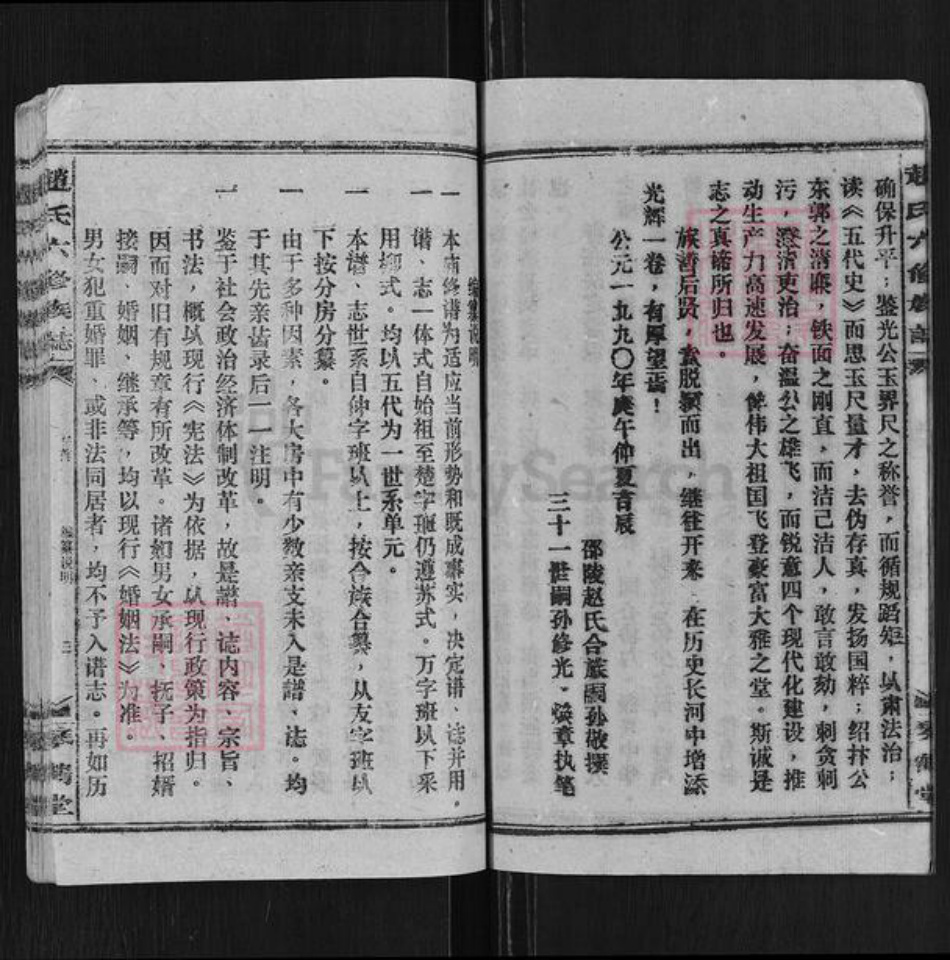 确保升平；鉴光公玉界尺之称誉，而循规蹈矩，以肃法治；
读《五代史》而思玉尺量才，去伪存真，发扬国粹；绍抃公
东郭之清廉，铁面之刚直，而洁己洁人，敢言敢劾，刺贪刺
污，澄清吏治；奋温公之雄飞，而锐意四个现代化建设，推
动生产力高速发展，俾伟大祖国飞登豪富大雅之堂。斯诚是
志之真谛所归也。
族濟后贤，意脱颖而出，继往开来 在历史长河中增添
光辉一卷，有厚望焉！
公元一九九〇年庚午仲夏吉辰
邵陵赵氏合族嗣孙敬撰
三十一世嗣孙修光、焕章执笔
趙氏六修族誌
编纂说明
三
琴鹤堂
编纂说明
一 本届终谱为适应当前形势和既成事实，决定谱、志并用。
一 谱、志一体式自始祖至楚字班仍遵苏式。万字班以下采
用 式。均以五代为一世系单元。
一 本谱、志世系自仲字班以上，按合族合纂，从友字班以
下按分房分纂。
一 由于多种因素，各大房中有少数亲支未入是谱、志。均
于其先亲齿录后一一注明。
一 鉴于社会政治经济体制改革，故是谱、志内容、宗旨、
书法，概以现行《宪法》为依据，以现行政策为指归。
因而对旧有规章有所改革。诸如男女承嗣、抚子、招婿
接嗣、婚姻、继承等，均以现行《婚姻法》为准。
男女犯重婚罪、或非法同居者，均不予入谱志。再如历
FamilySearch